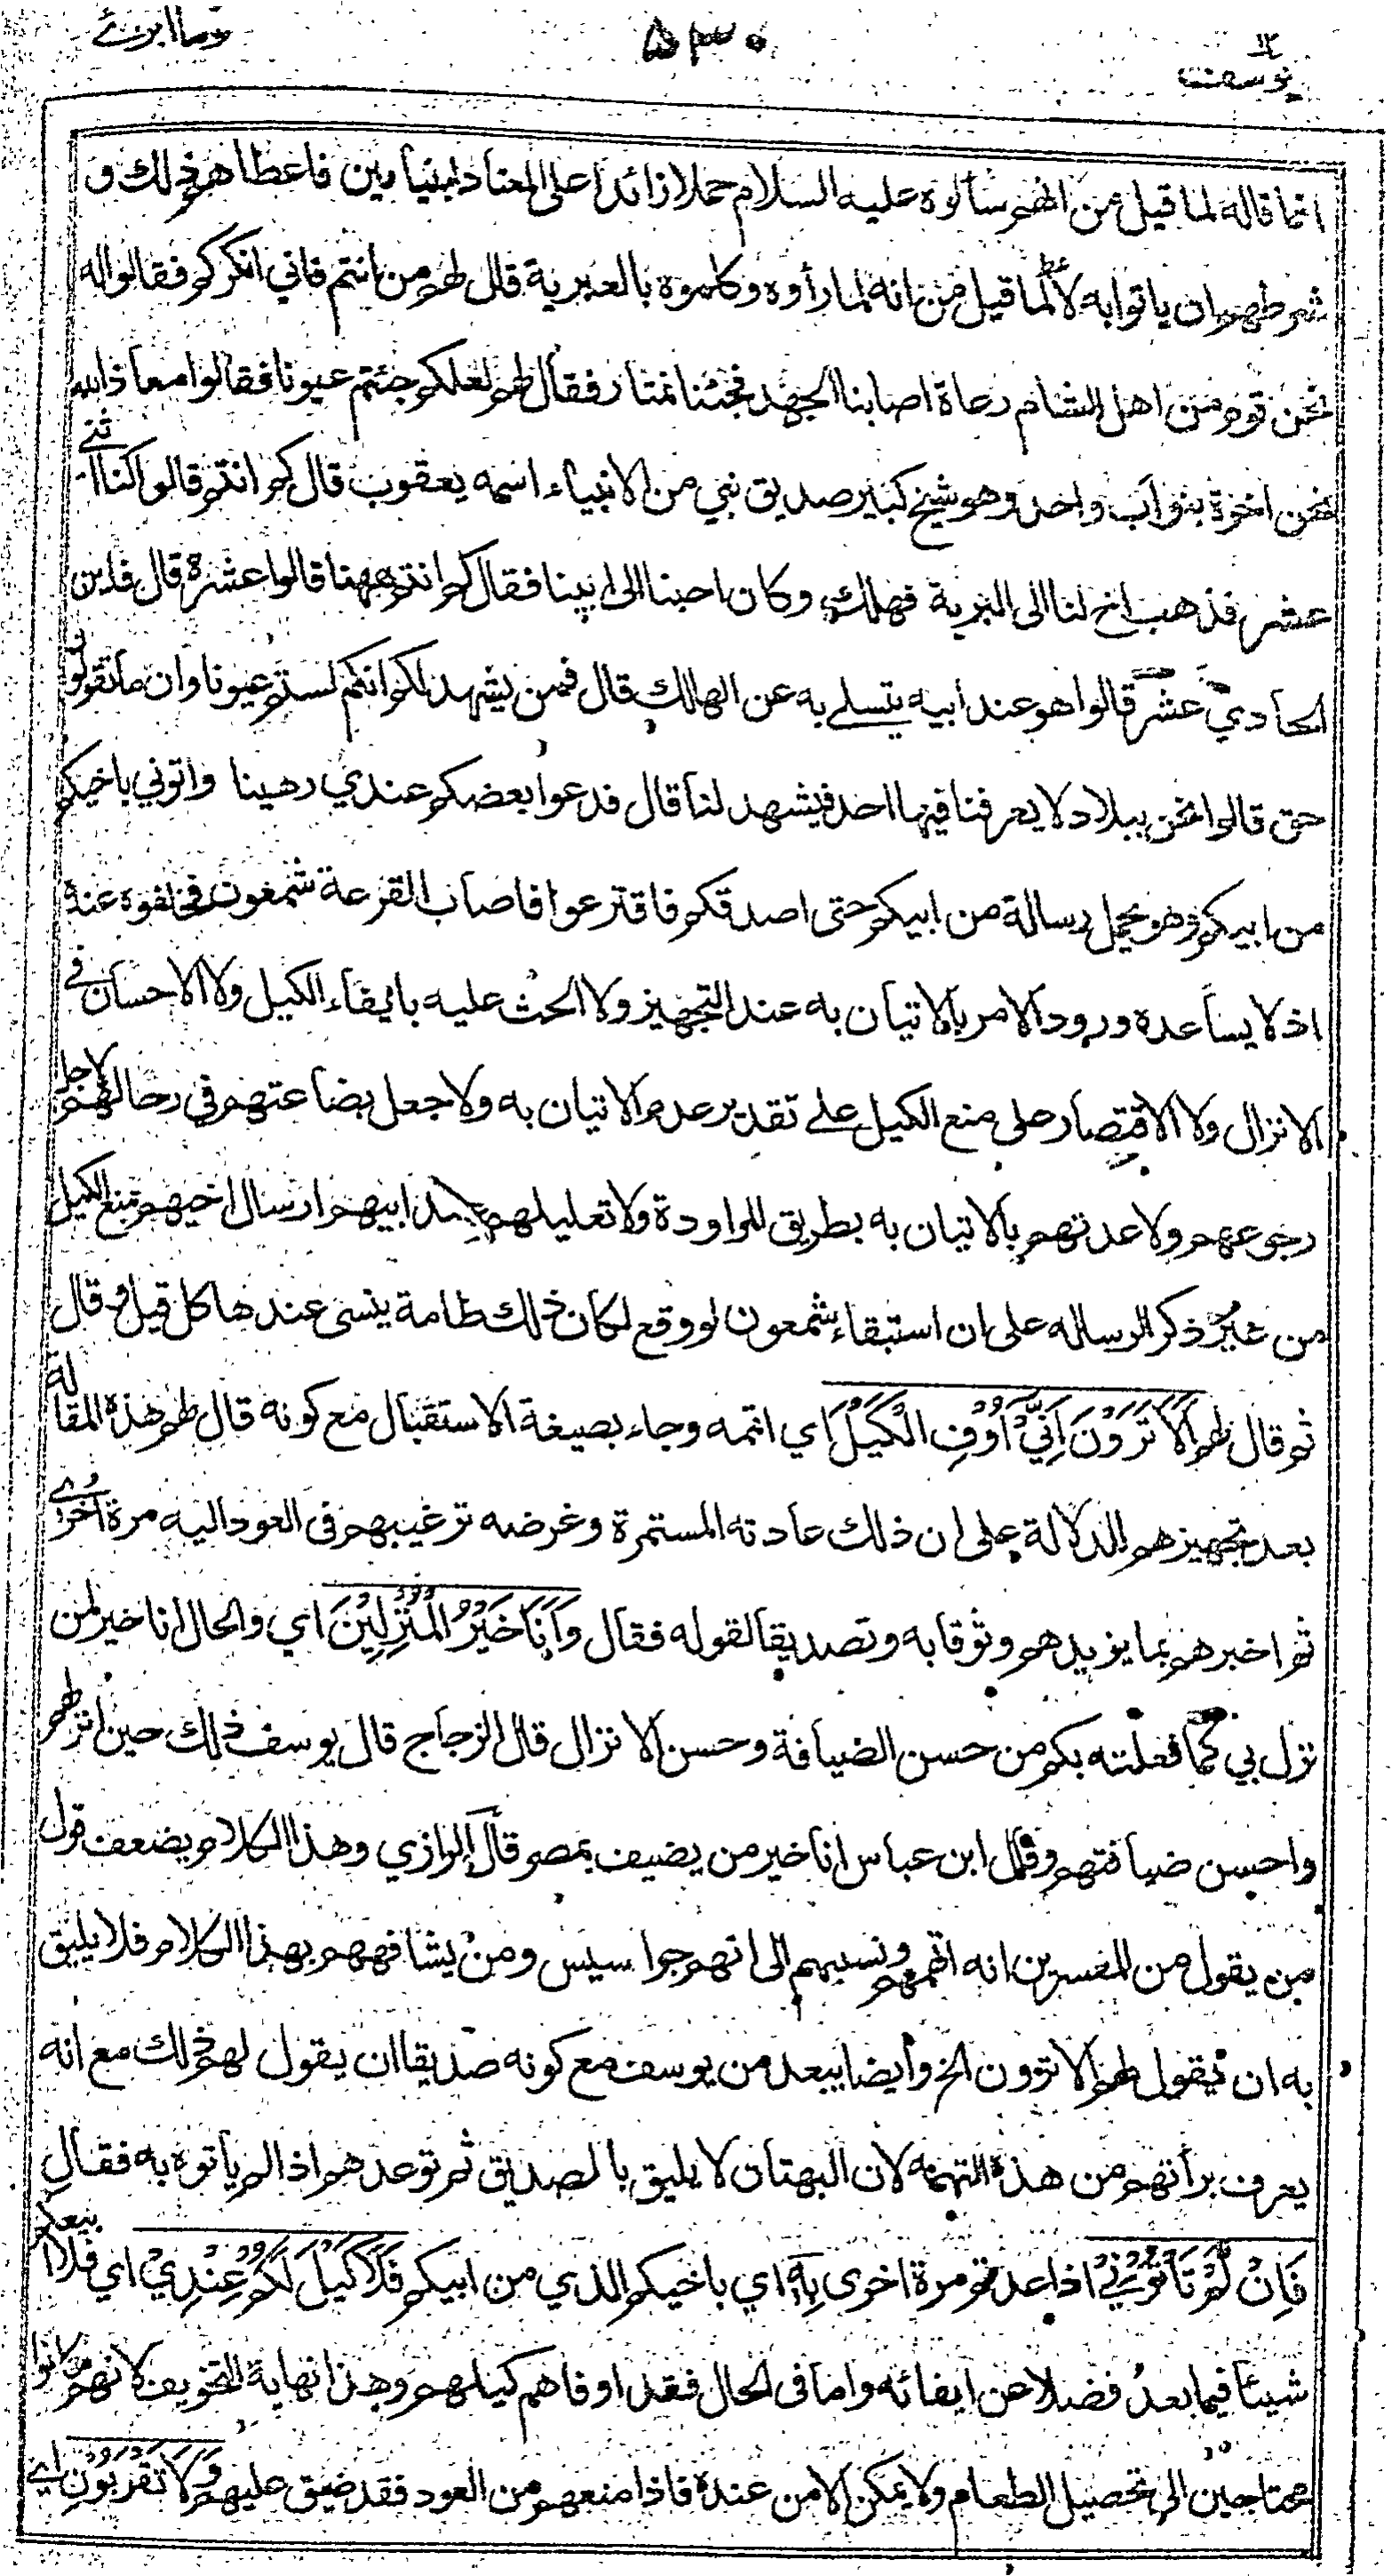 وما ابرئ
٥٣٠
١٢
يوسف
انما قاله لما قيل من انهم سألوه عليه السلام حملا زائدا على المعتاد لبنيامين فاعطاهم ذلك و
شرطهم ان ياتوا به لا لما قيل من انه لما رأوه وكلموه بالعبرية قال لهم من انتم فاني انكركم فقالوا له
نحن قوم من اهل الشام رعاة اصابنا الجهد فجئنا نمتار فقال لهم لعلكم جئتم عيونا فقالوا معاذ الله
نحن اخوة بنو اب واحد وهو شيخ كبير صديق نبي من الانبياء اسمه يعقوب قال كم انتم قالوا كنا اثني
عشر فذهب اخ لنا الى البرية فهلك وكان احبنا الى ابينا فقال كم انتم ههنا قالوا عشرة قال فاين
الحادي عشر قالوا هو عند ابيه يتسلى به عن الهالك قال فمن يشهد لكم انكم لستم عيونا وان ما تقولون
حق قالوا نحن ببلاد لا يعرفنا فيها احد فيشهد لنا قال فدعوا بعضكم عندي رهينا واتوني باخيكم
من ابيكم وهو يحمل رسالة من ابيكم حتى اصدقكم فاقترعوا فاصاب القرعة شمعون فخلفوه عنده
اذ لا يساعده ورود الامر بالاتيان به عند التجهيز ولا الحث عليه بايفاء الكيل ولا الاحسان في
الانزال ولا الاقتصار على منع الكيل على تقدير عدم الاتيان به ولا جعل بضاعتهم في رحالهم لاجل
رجوعهم ولا عدتهم بالاتيان به بطريق المراودة ولا تعليلهم عند ابيهم ارسال اخيهم بمنع الكيل
من غير ذكر الرساله على ان استبقاء شمعون لو وقع لكان ذلك طامة ينسى عندها كل قيل وقال
ثم قال لهم اَلَا تَرَوْنَ اَنِّيْ اُوْفِ الْكَيْلَ اي اتمه وجاء بصيغة الاستقبال مع كونه قال لهم هذه المقالة
بعد تجهيزهم للدلالة على ان ذلك عادته المستمرة وغرضه ترغيبهم في العود اليه مرة اخرى
ثم اخبرهم بما يزيدهم وثوقا به وتصديقا لقوله فقال وَاَنَا خَيْرُ الْمُنْزِلِيْنَ اي والحال انا خير لمن
نزل بي كما فعلته بكم من حسن الضيافة وحسن الانزال قال الزجاج قال يوسف ذلك حين انزلهم
واحسن ضيافتهم وقال ابن عباس انا خير من يضيف بمصر قال الرازي وهذا الكلام يضعف قول
من يقول من المفسرين انه اتهمهم ونسبهم الى انهم جواسيس ومن يشافههم بهذا الكلام فلا يليق
به ان يقول لهم الا ترون الخ وأيضا يبعد من يوسف مع كونه صديقا ان يقول لهم ذلك مع انه
يعرف برأتهم من هذه التهمة لان البهتان لا يليق بالصديق ثم توعدهم اذا لم يأتوه به فقال
فَاِنْ لَّمْ تَأْتُوْنِيْ اذا عدتم مرة اخرى بِهٖ اي باخيكم الذي من ابيكم فَلَا كَيْلَ لَكُمْ عِنْدِيْ اي فلا ابيعكم
شيئا فيما بعد فضلا عن ايفائه واما في الحال فقد اوفاهم كيلهم وهذا نهاية التخويف لانهم كانوا
محتاجين الى تحصيل الطعام ولا يمكن الا من عنده فاذا منعهم من العود فقد ضيق عليهم وَلَا تَقْرَبُوْنِ اي